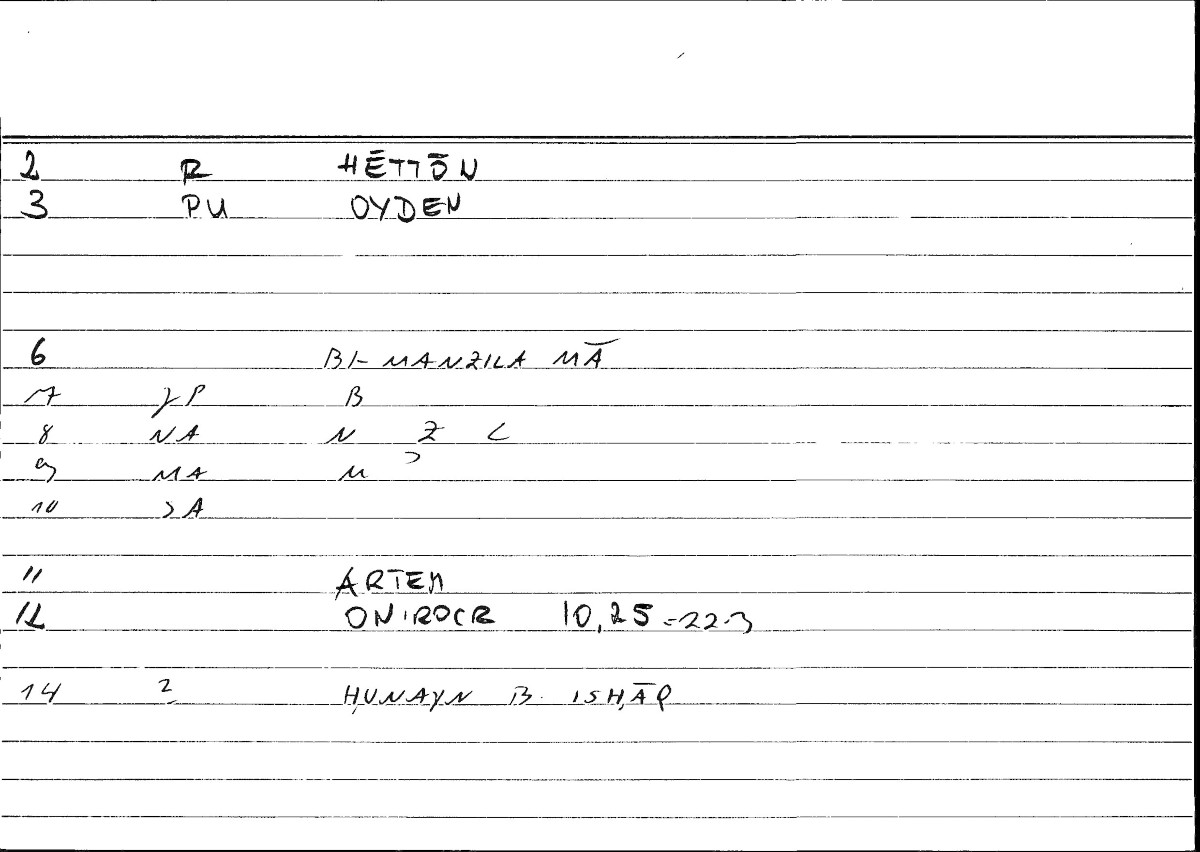 2 R HĒTTŌN
3 PU OYDEN
6 BI- MANZILA MĀ
7 JP B
8 NA N Z L
9 MA M ɔ
10 SA
11 ARTEM
12 ONIROCR 10,25 = 22.3
14 2 ḤUNAYN B. ISḤĀQ